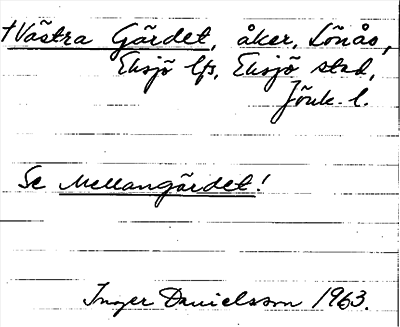 †Västra Gärdet, åker, Lönås,
Eksjö lfs, Eksjö stad,
Jönk. l.
Se Mellangärdet!
Inger Danielsson 1963.